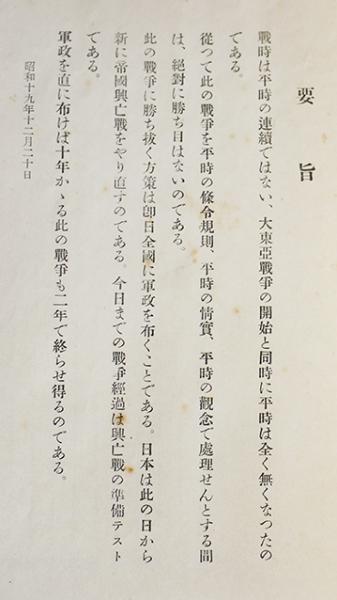 要旨
戰時は平時の連續ではない、大東亞戰爭の開始と同時に平時は全く無くなつたの
である。
從つて此の戰爭を平時の條令規則、平時の情實、平時の觀念で處理せんとする間
は、絕對に勝ち目はないのである。
此の戰爭に勝ち拔く方策は卽日全國に軍政を布くことである。日本は此の日から
新に帝國興亡戰をやり直すのである。今日までの戰爭經過は興亡戰の準備テスト
である。
軍政を直に布けば十年かゝる此の戰爭も二年で終らせ得るのである。
昭和十九年十二月二十日